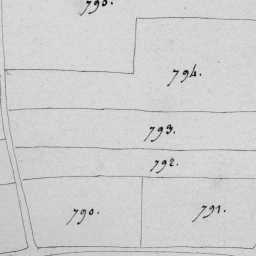 795.
794.
793.
792.
790.
791.